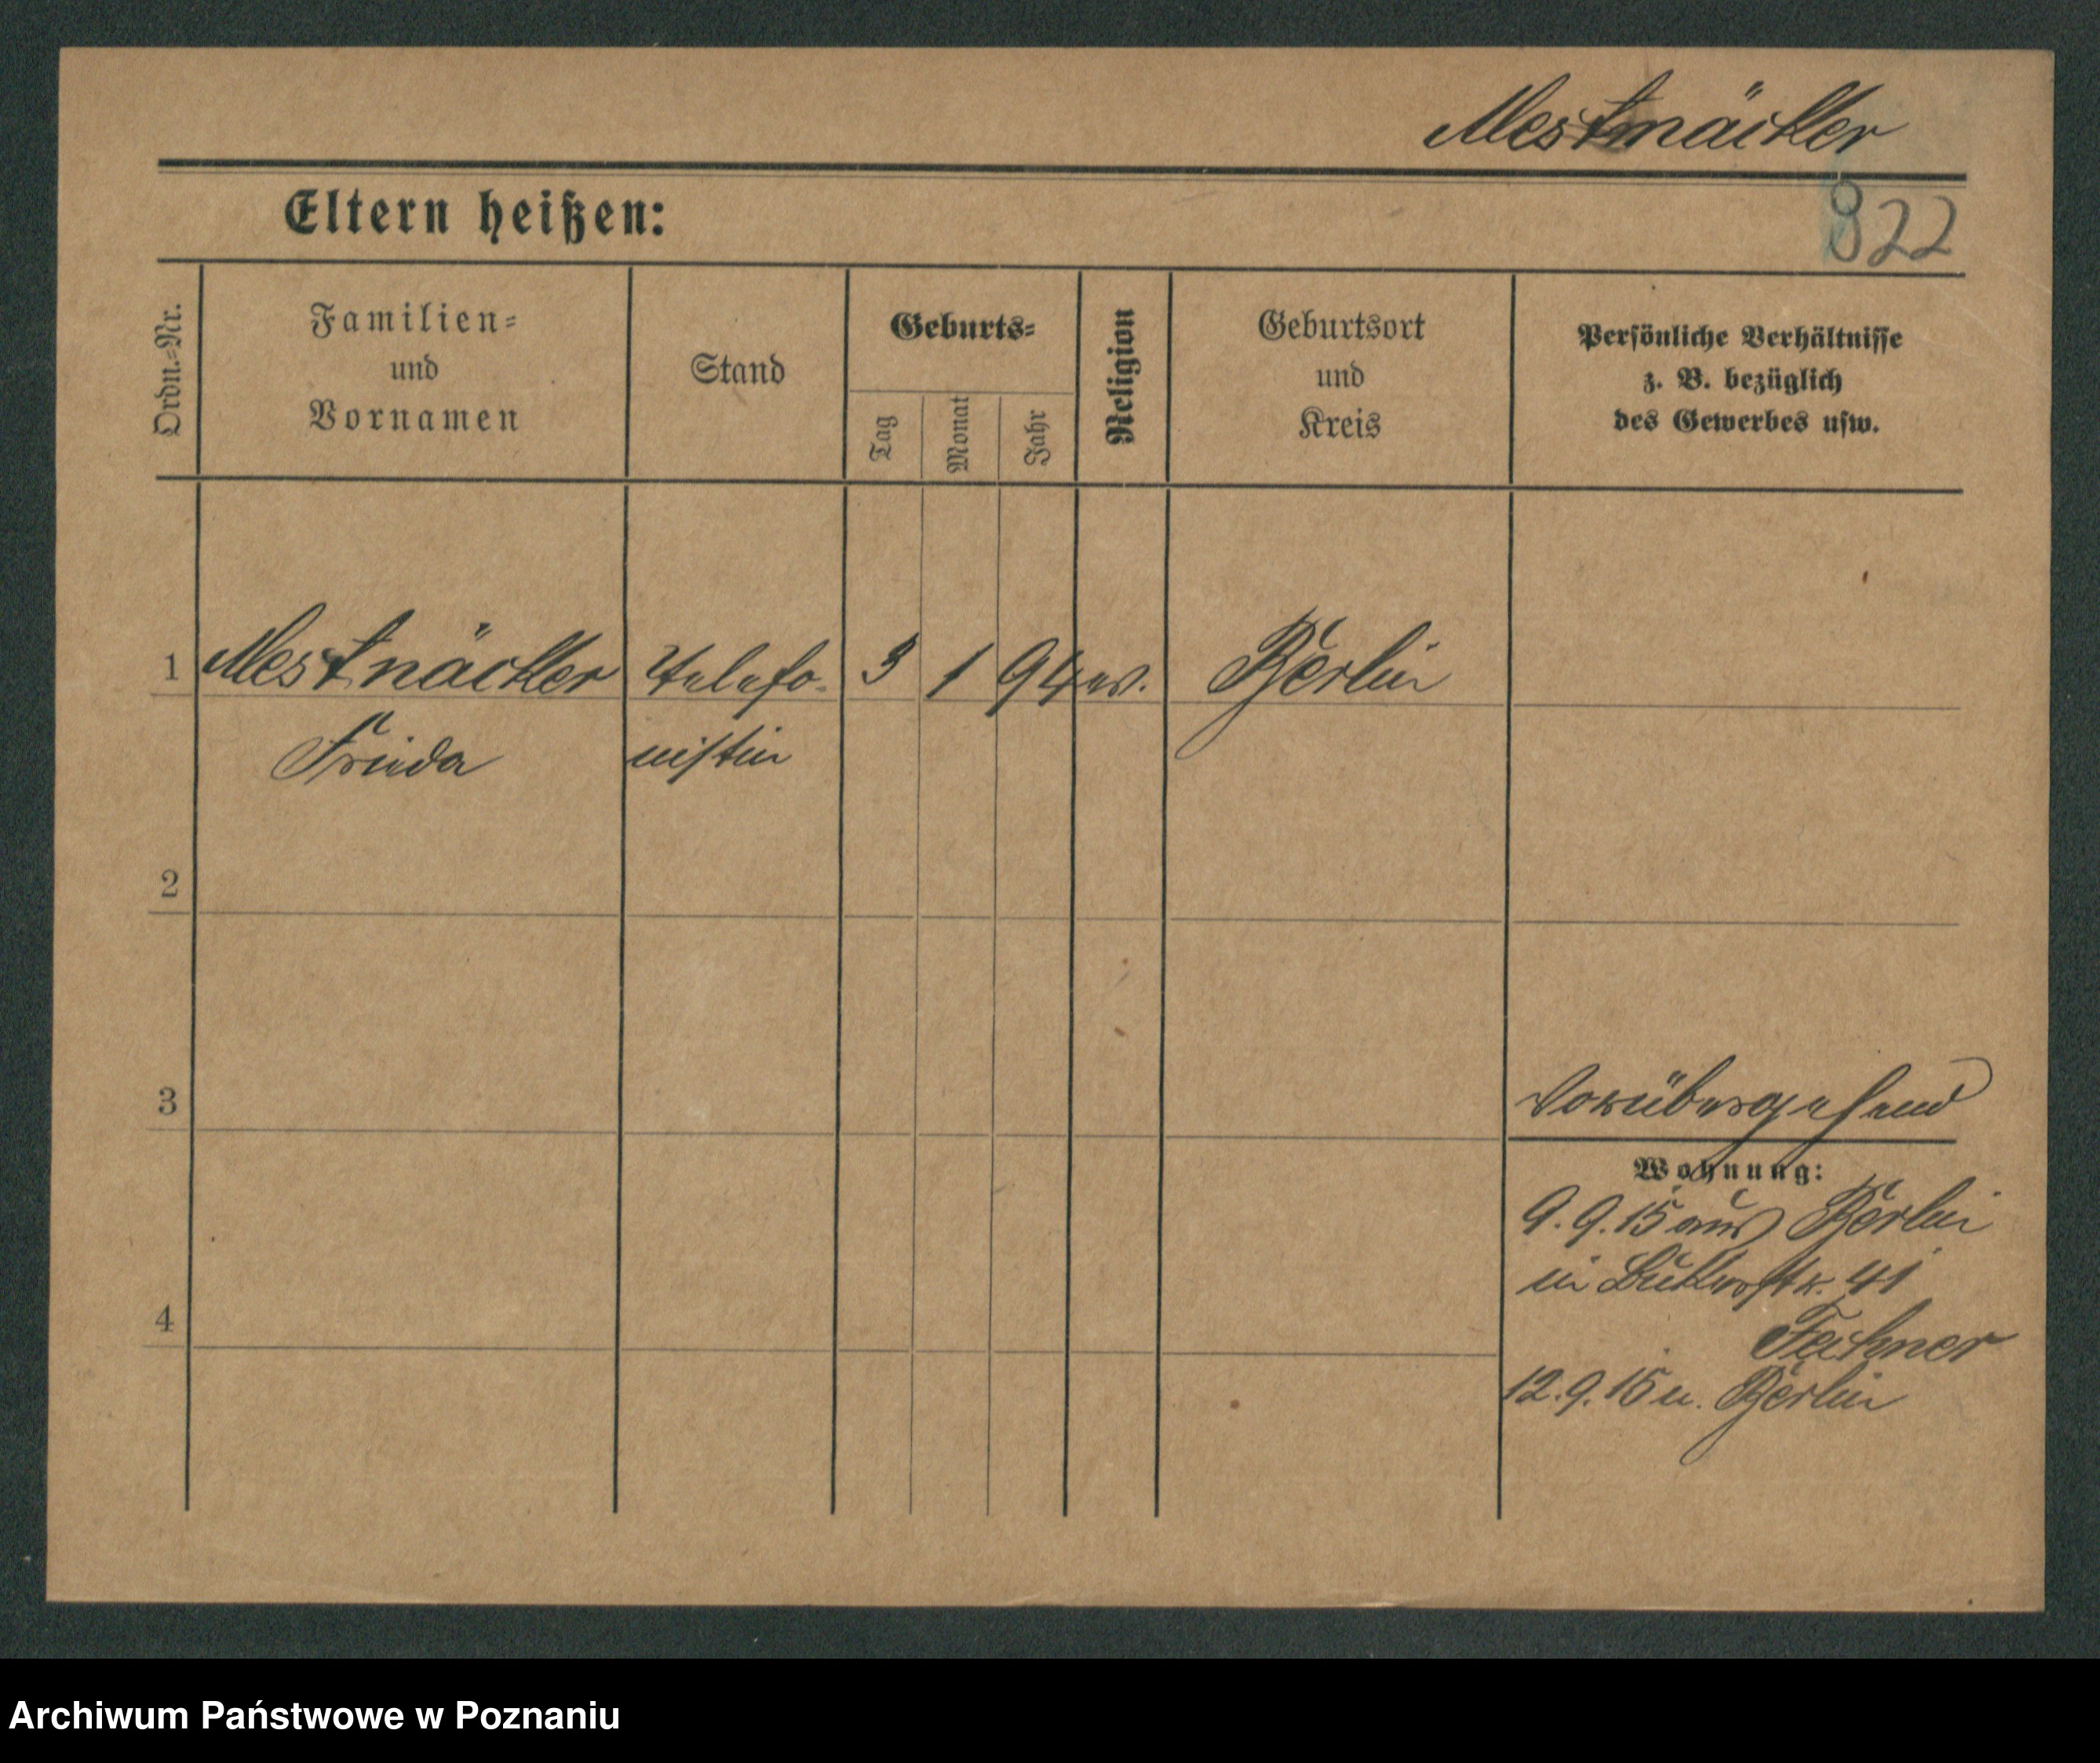 Mestmäcker
822
Eltern heißen:
Ordn.-Nr.
Familien-
und
Vornamen
Stand
Geburts-
Tag
Monat
Jahr
Religion
Geburtsort
und
Kreis
Persönliche Verhältnisse
z. B. bezüglich
des Gewerbes usw.
1 Mestmäcker Telefo- 3 1 94 ev. Berlin
Frieda nistin
2
3
Vorübergehend
Wohnung:
9.9.15 aus Berlin
in 41
4
Fechner
12.9.15 n. Berlin
Archiwum Państwowe w Poznaniu